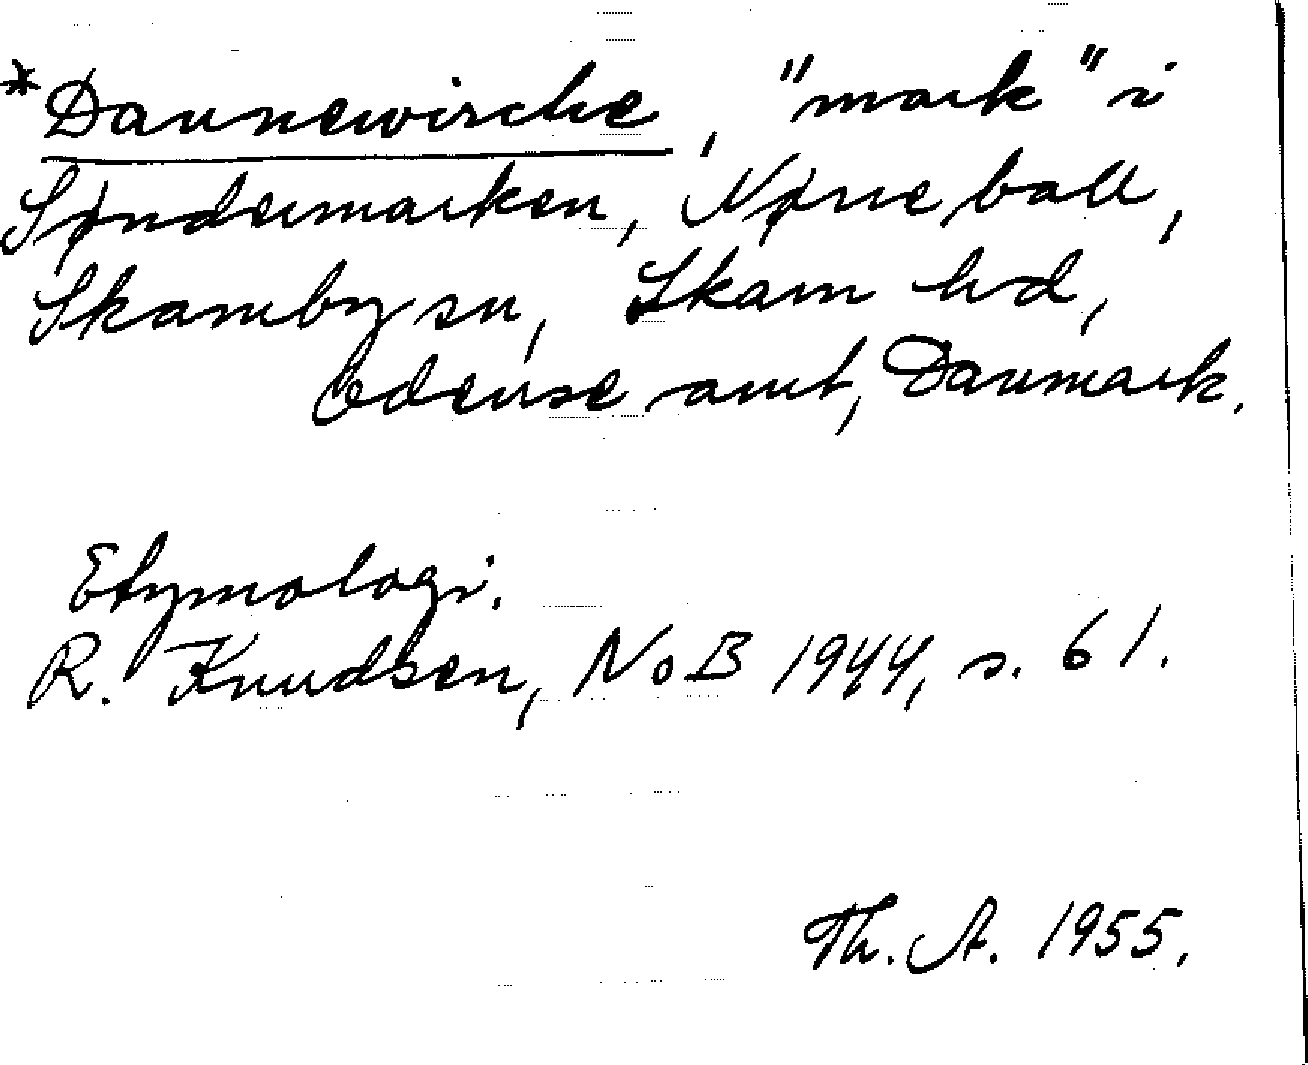 *Dannewirche, "mark" i
Søndermarken, Nørreball,
Skamby sn, Skam hd,
Odense amt, Danmark.
Etymologi.
R. Knudsen, NoB 1944, s. 61.
Th. A. 1955.